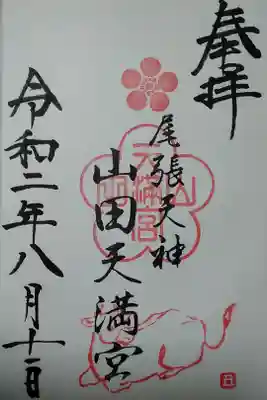 奉拝
尾張天神
山田天満宮
令和二年八月十一日
山田
天満宮
丑